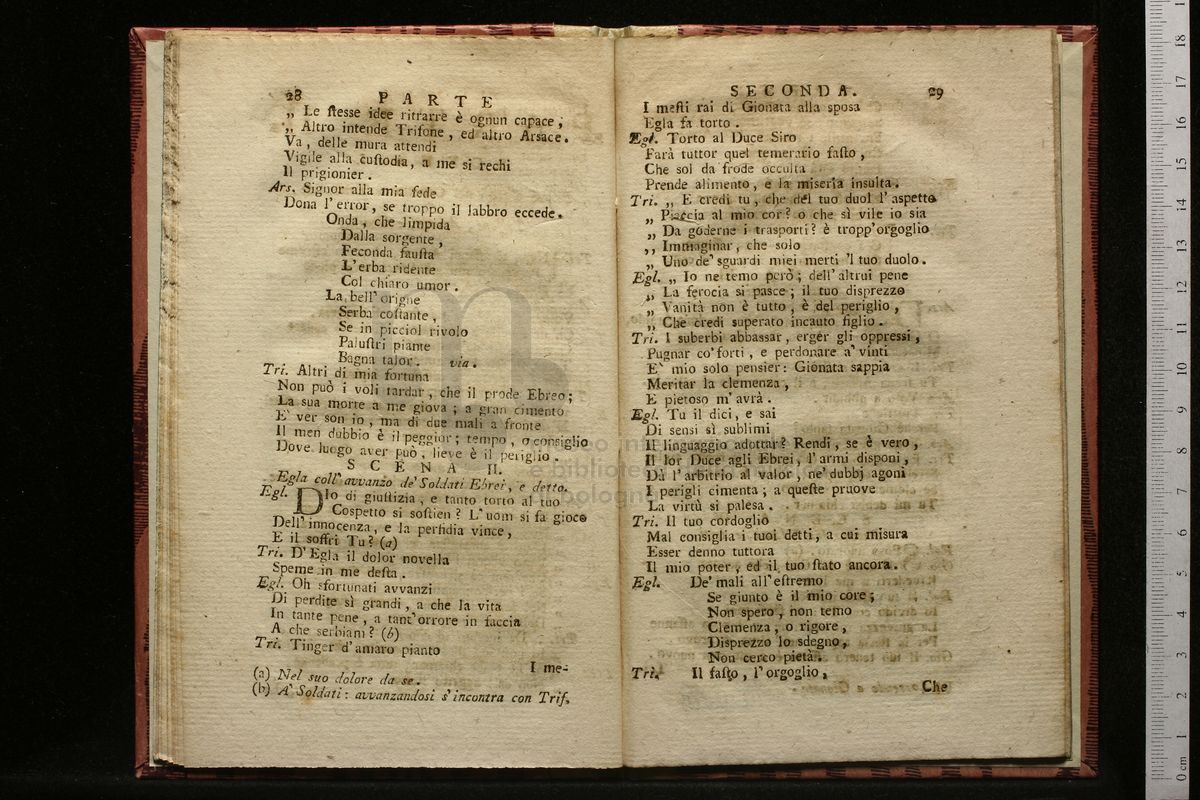 28 PARTE
„ Le ſteſſe idee ritrarre è ognun capace,
„ Altro intende Trifone, ed altro Arsace.
Va, delle mura attendi
Vigile alla cuſtodia, a me si rechi
Il prigionier.
Ars. Signor alla mia fede
Dona l'error, se troppo il labbro eccede.
Onda, che limpida
Dalla sorgente,
Feconda fauſta
L'erba ridente
Col chiaro umor.
La bell'origne
Serba coſtante,
Se in picciol rivolo
Paluſtri piante
Bagna talor. via.
Tri. Altri di mia fortuna
Non può i voli tardar, che il prode Ebreo;
La sua morte a me giova; a gran cimento
E' ver son io, ma di due mali a fronte
Il men dubbio è il peggior; tempo, o consiglio
Dove luogo aver può, lieve è il periglio.
SCENA II.
Egla coll'avvanzo de' Soldati Ebrei, e detto.
Egl. DIo di giuſtizia, e tanto torto al tuo
Cospetto si soſtien? L'uom si fa gioco
Dell'innocenza, e la perfidia vince,
E il soffri Tu? (a)
Tri. D'Egla il dolor novella
Speme in me deſta.
Egl. Oh sfortunati avvanzi
Di perdite sì grandi, a che la vita
In tante pene, a tant'orrore in faccia
A che serbiam? (b)
Tri. Tinger d'amaro pianto
I me-
(a) Nel suo dolore da se.
(b) A' Soldati: avvanzandosi s'incontra con Trif.
SECONDA. 29
I meſti rai di Gionata alla sposa
Egla fa torto.
Egl. Torto al Duce Siro
Farà tuttor quel temerario faſto,
Che sol da frode occulta
Prende alimento, e la miseria insulta.
Tri. „ E credi tu, che del tuo duol l'aspetto
„ Piaccia al mio cor? o che sì vile io sia
„ Da goderne i trasporti? è tropp'orgoglio
„ Immaginar, che solo
„ Uno de' sguardi miei merti 'l tuo duolo.
Egl. „ Io ne temo però; dell'altrui pene
„ La ferocia si pasce; il tuo disprezzo
„ Vanità non è tutto, è del periglio,
„ Che credi superato incauto figlio.
Tri. I suberbi abbassar, erger gli oppressi,
Pugnar co' forti, e perdonare a' vinti
E' mio solo pensier: Gionata sappia
Meritar la clemenza,
E pietoso m'avrà.
Egl. Tu il dici, e sai
Di sensi sì sublimi
Il linguaggio adottar? Rendi, se è vero,
Il lor Duce agli Ebrei, l'armi disponi,
Dà l'arbitrio al valor, ne' dubbj agoni
I perigli cimenta; a queſte pruove
La virtù si palesa.
Tri. Il tuo cordoglio
Mal consiglia i tuoi detti, a cui misura
Esser denno tuttora
Il mio poter, ed il tuo ſtato ancora.
Egl. De' mali all'eſtremo
Se giunto è il mio core;
Non spero, non temo
Clemenza, o rigore,
Disprezzo lo sdegno,
Non cerco pietà.
Tri. Il faſto, l'orgoglio,
Che